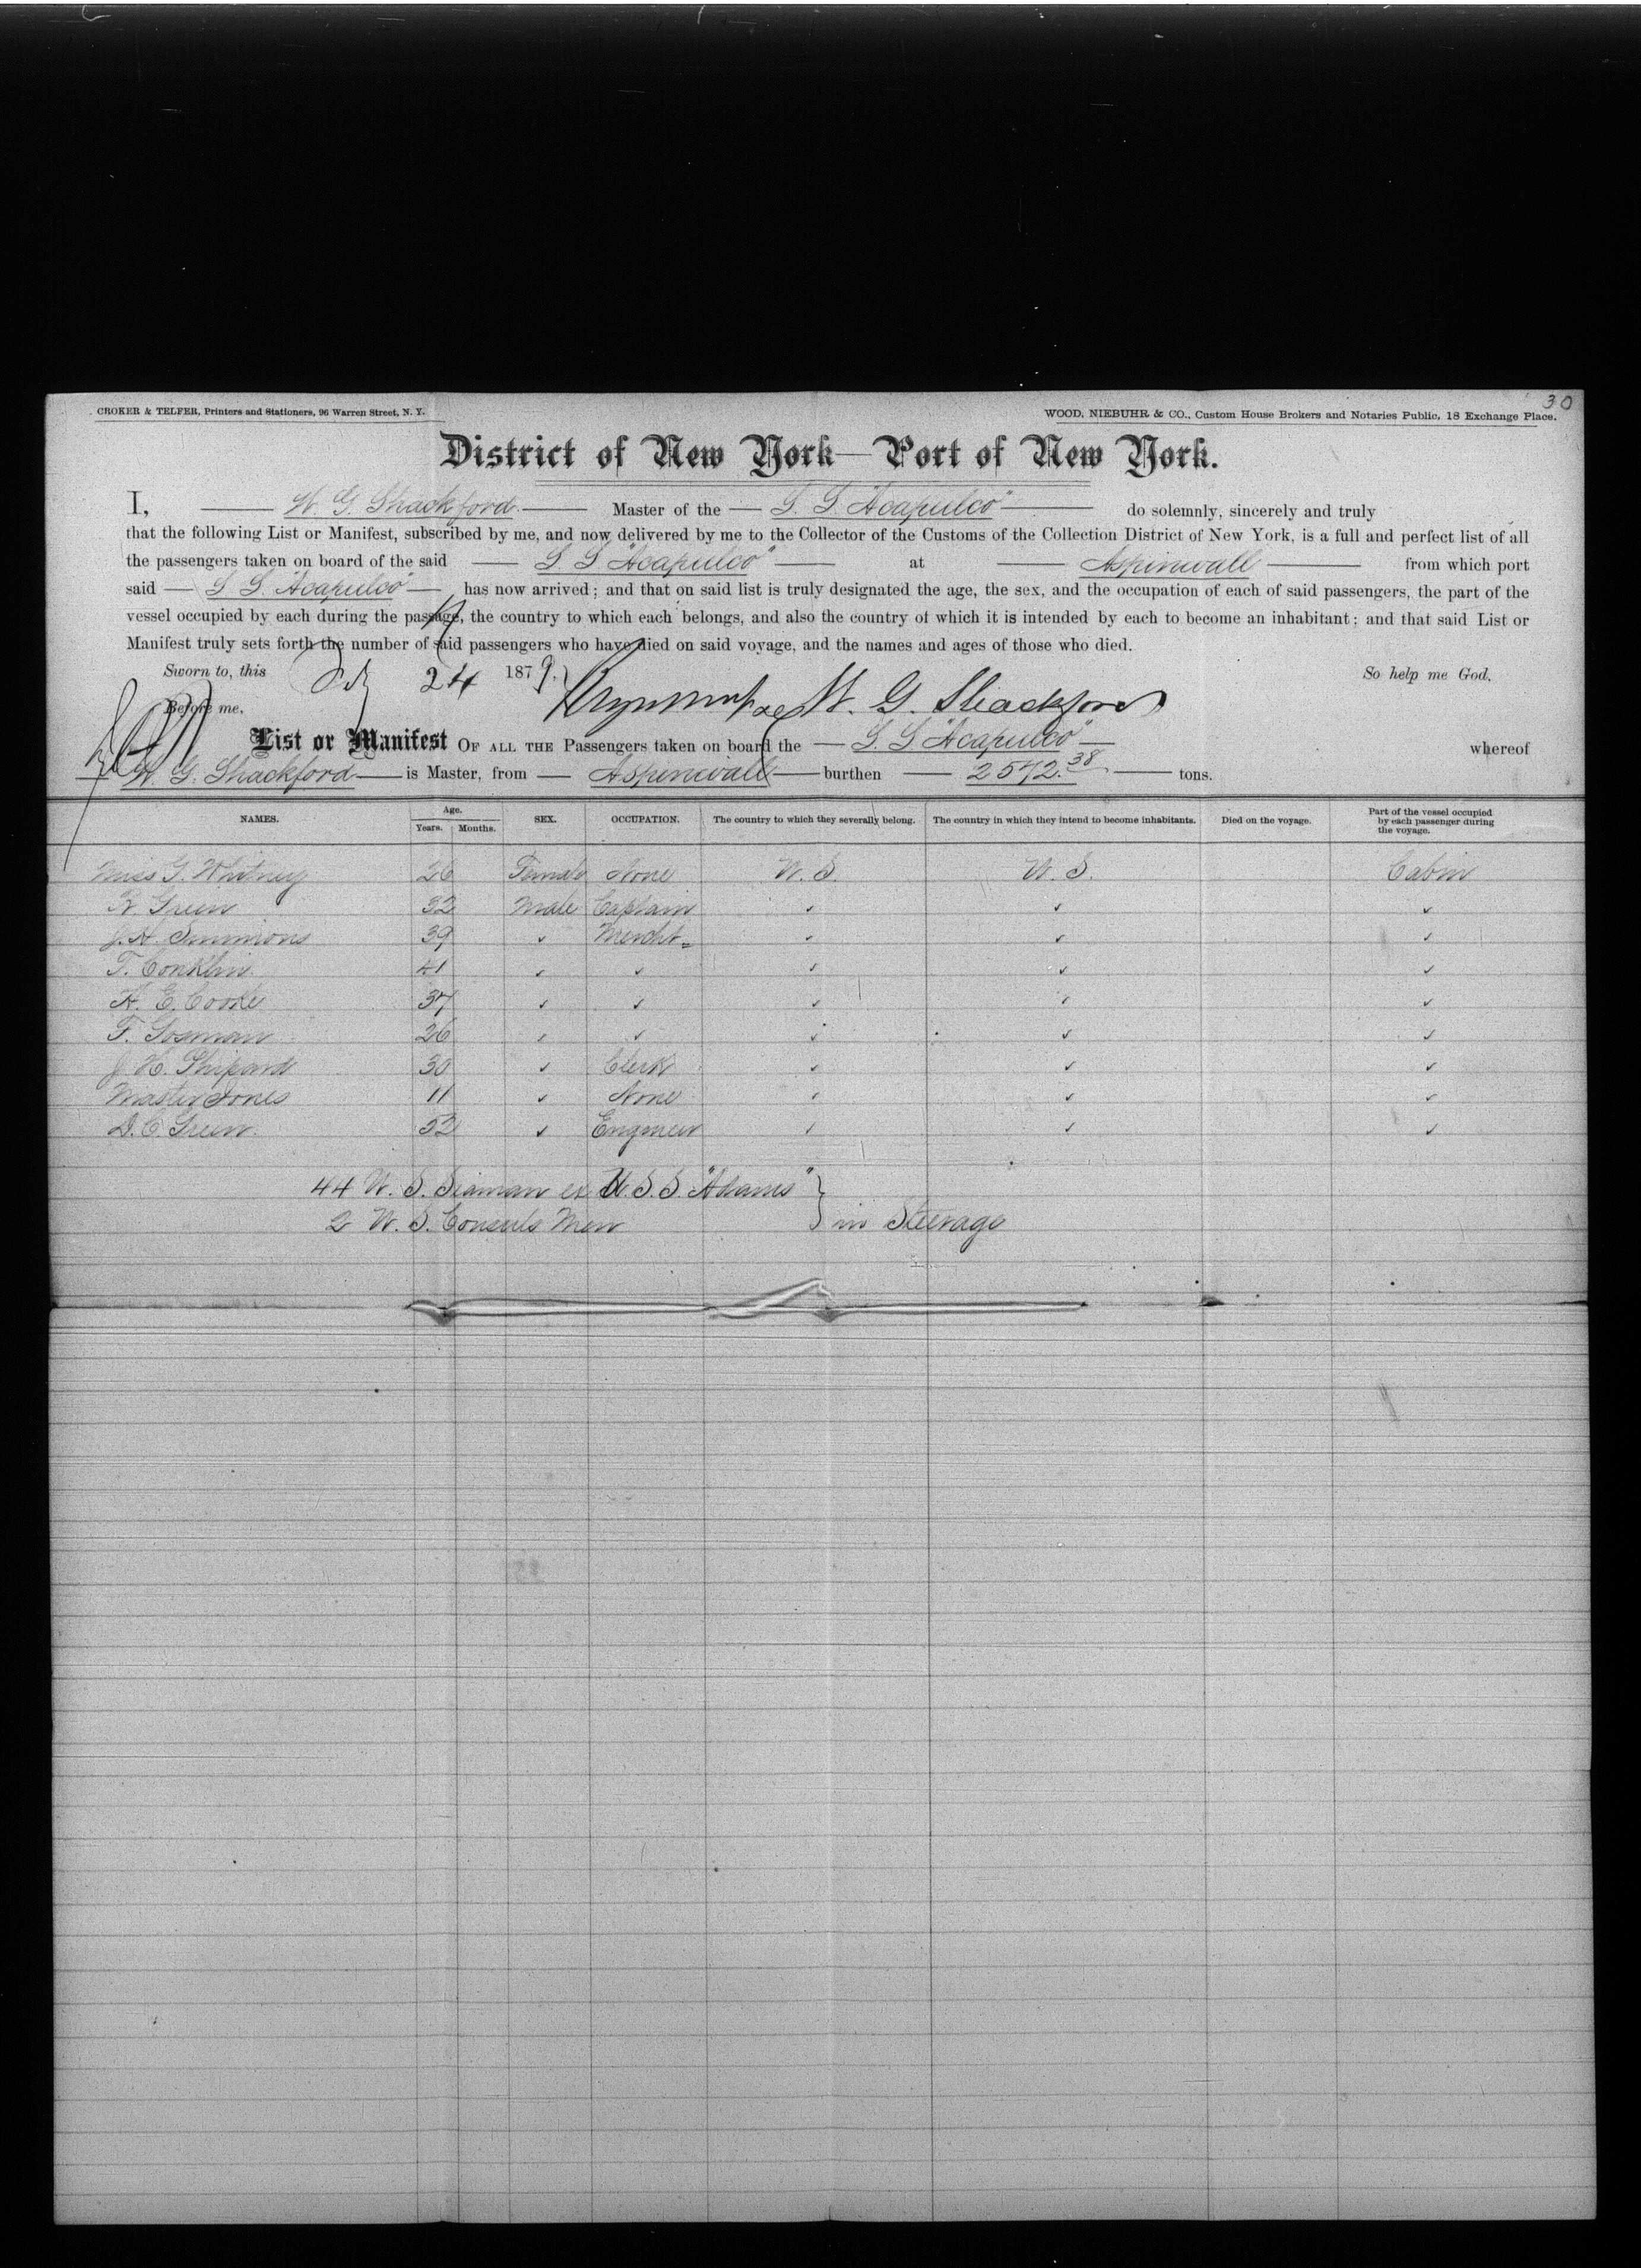 30
CROKER & TELFER, Printers and Stationers, 96 Warren Street, N. Y. WOOD, NIEBUHR & CO., Custom House Brokers and Notaries Public, 18 Exchange Place.
District of New York—Port of New York.
I, W. G. Shackford Master of the S. S. "Acapulco" do solemnly, sincerely and truly
that the following List or Manifest, subscribed by me, and now delivered by me to the Collector of the Customs of the Collection District of New York, is a full and perfect list of all
the passengers taken on board of the said S. S "Acapulco" at Aspinwall from which port
said S S. "Acapulco" has now arrived; and that on said list is truly designated the age, the sex, and the occupation of each of said passengers, the part of the
vessel occupied by each during the passage, the country to which each belongs, and also the country of which it is intended by each to become an inhabitant; and that said List or
Manifest truly sets forth the number of said passengers who have died on said voyage, and the names and ages of those who died.
Sworn to, this 24 1879. So help me God.
Before me, W. G. Shackford
List or Manifest OF ALL THE Passengers taken on board the S. S "Acapulco" whereof
W. G. Shackford is Master, from Aspinwall burthen 2572.38 tons.
NAMES. Age. Years. Months. SEX. OCCUPATION. The country to which they severally belong. The country in which they intend to become inhabitants. Died on the voyage. Part of the vessel occupied by each passenger during the voyage.
Miss G. Whitney 26 Female None U. S. U. S. Cabin
R. Green 32 Male Captain ✓ ✓ ✓
J. H. Simmons 39 ✓ Mercht ✓ ✓ ✓
T. Conklin 41 ✓ ✓ ✓ ✓ ✓
H. E. Cooke 37 ✓ ✓ ✓ ✓ ✓
F. Gosman 26 ✓ ✓ ✓ ✓ ✓
J H. Shipard 30 ✓ Clerk ✓ ✓ ✓
Master Jones 11 ✓ None ✓ ✓ ✓
D. C. Green 52 ✓ Engineer ✓ ✓ ✓
44 U. S. Seaman ex U. S. S "Adams"
2 U. S. Consuls Men } in Steerage